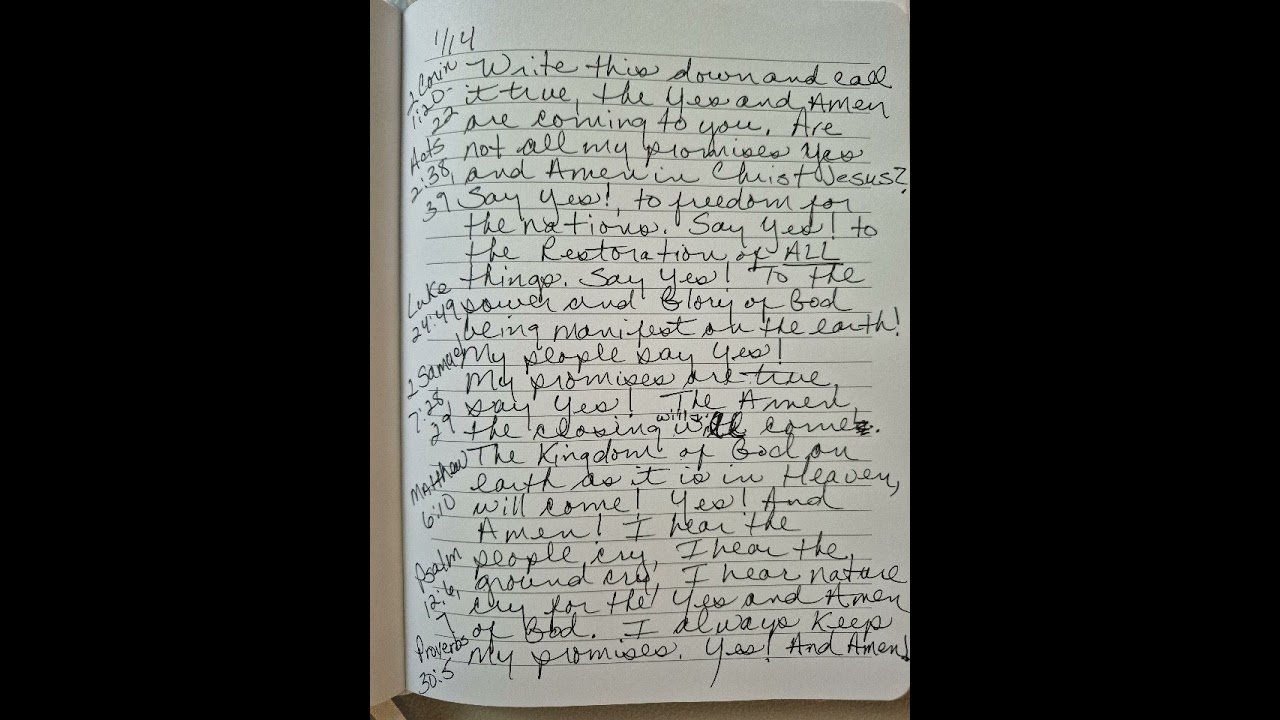 1/14
2 Corin
1:20-
22
Acts
2:38,
39
Luke
24:49
2 Samuel
7:28
29
Matthew
6:10
Psalm
12:6,
7
Proverbs
30:5
Write this down and call
it true, the Yes and Amen
are coming to you. Are
not all my promises yes
and Amen in Christ Jesus?
Say Yes!, to freedom for
the nations. Say Yes! to
the Restoration of ALL
things. Say Yes! To the
power and Glory of God
being manifest on the earth!
My people say Yes!
My promises are true,
say Yes! The Amen,
the closing will come.
The Kingdom of God on
earth as it is in Heaven,
will come! Yes! And
Amen! I hear the
people cry, I hear the
ground cry, I hear nature
cry for the Yes and Amen
of God. I always Keep
My promises. Yes! And Amen!